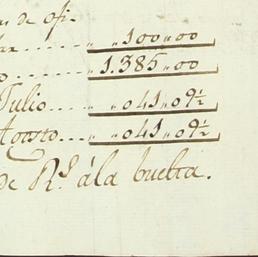 de ofi-
100"00
1.385"00
Julio.... " "041"09½
Agosto... " "041"09½
de Rs. á la buelta.